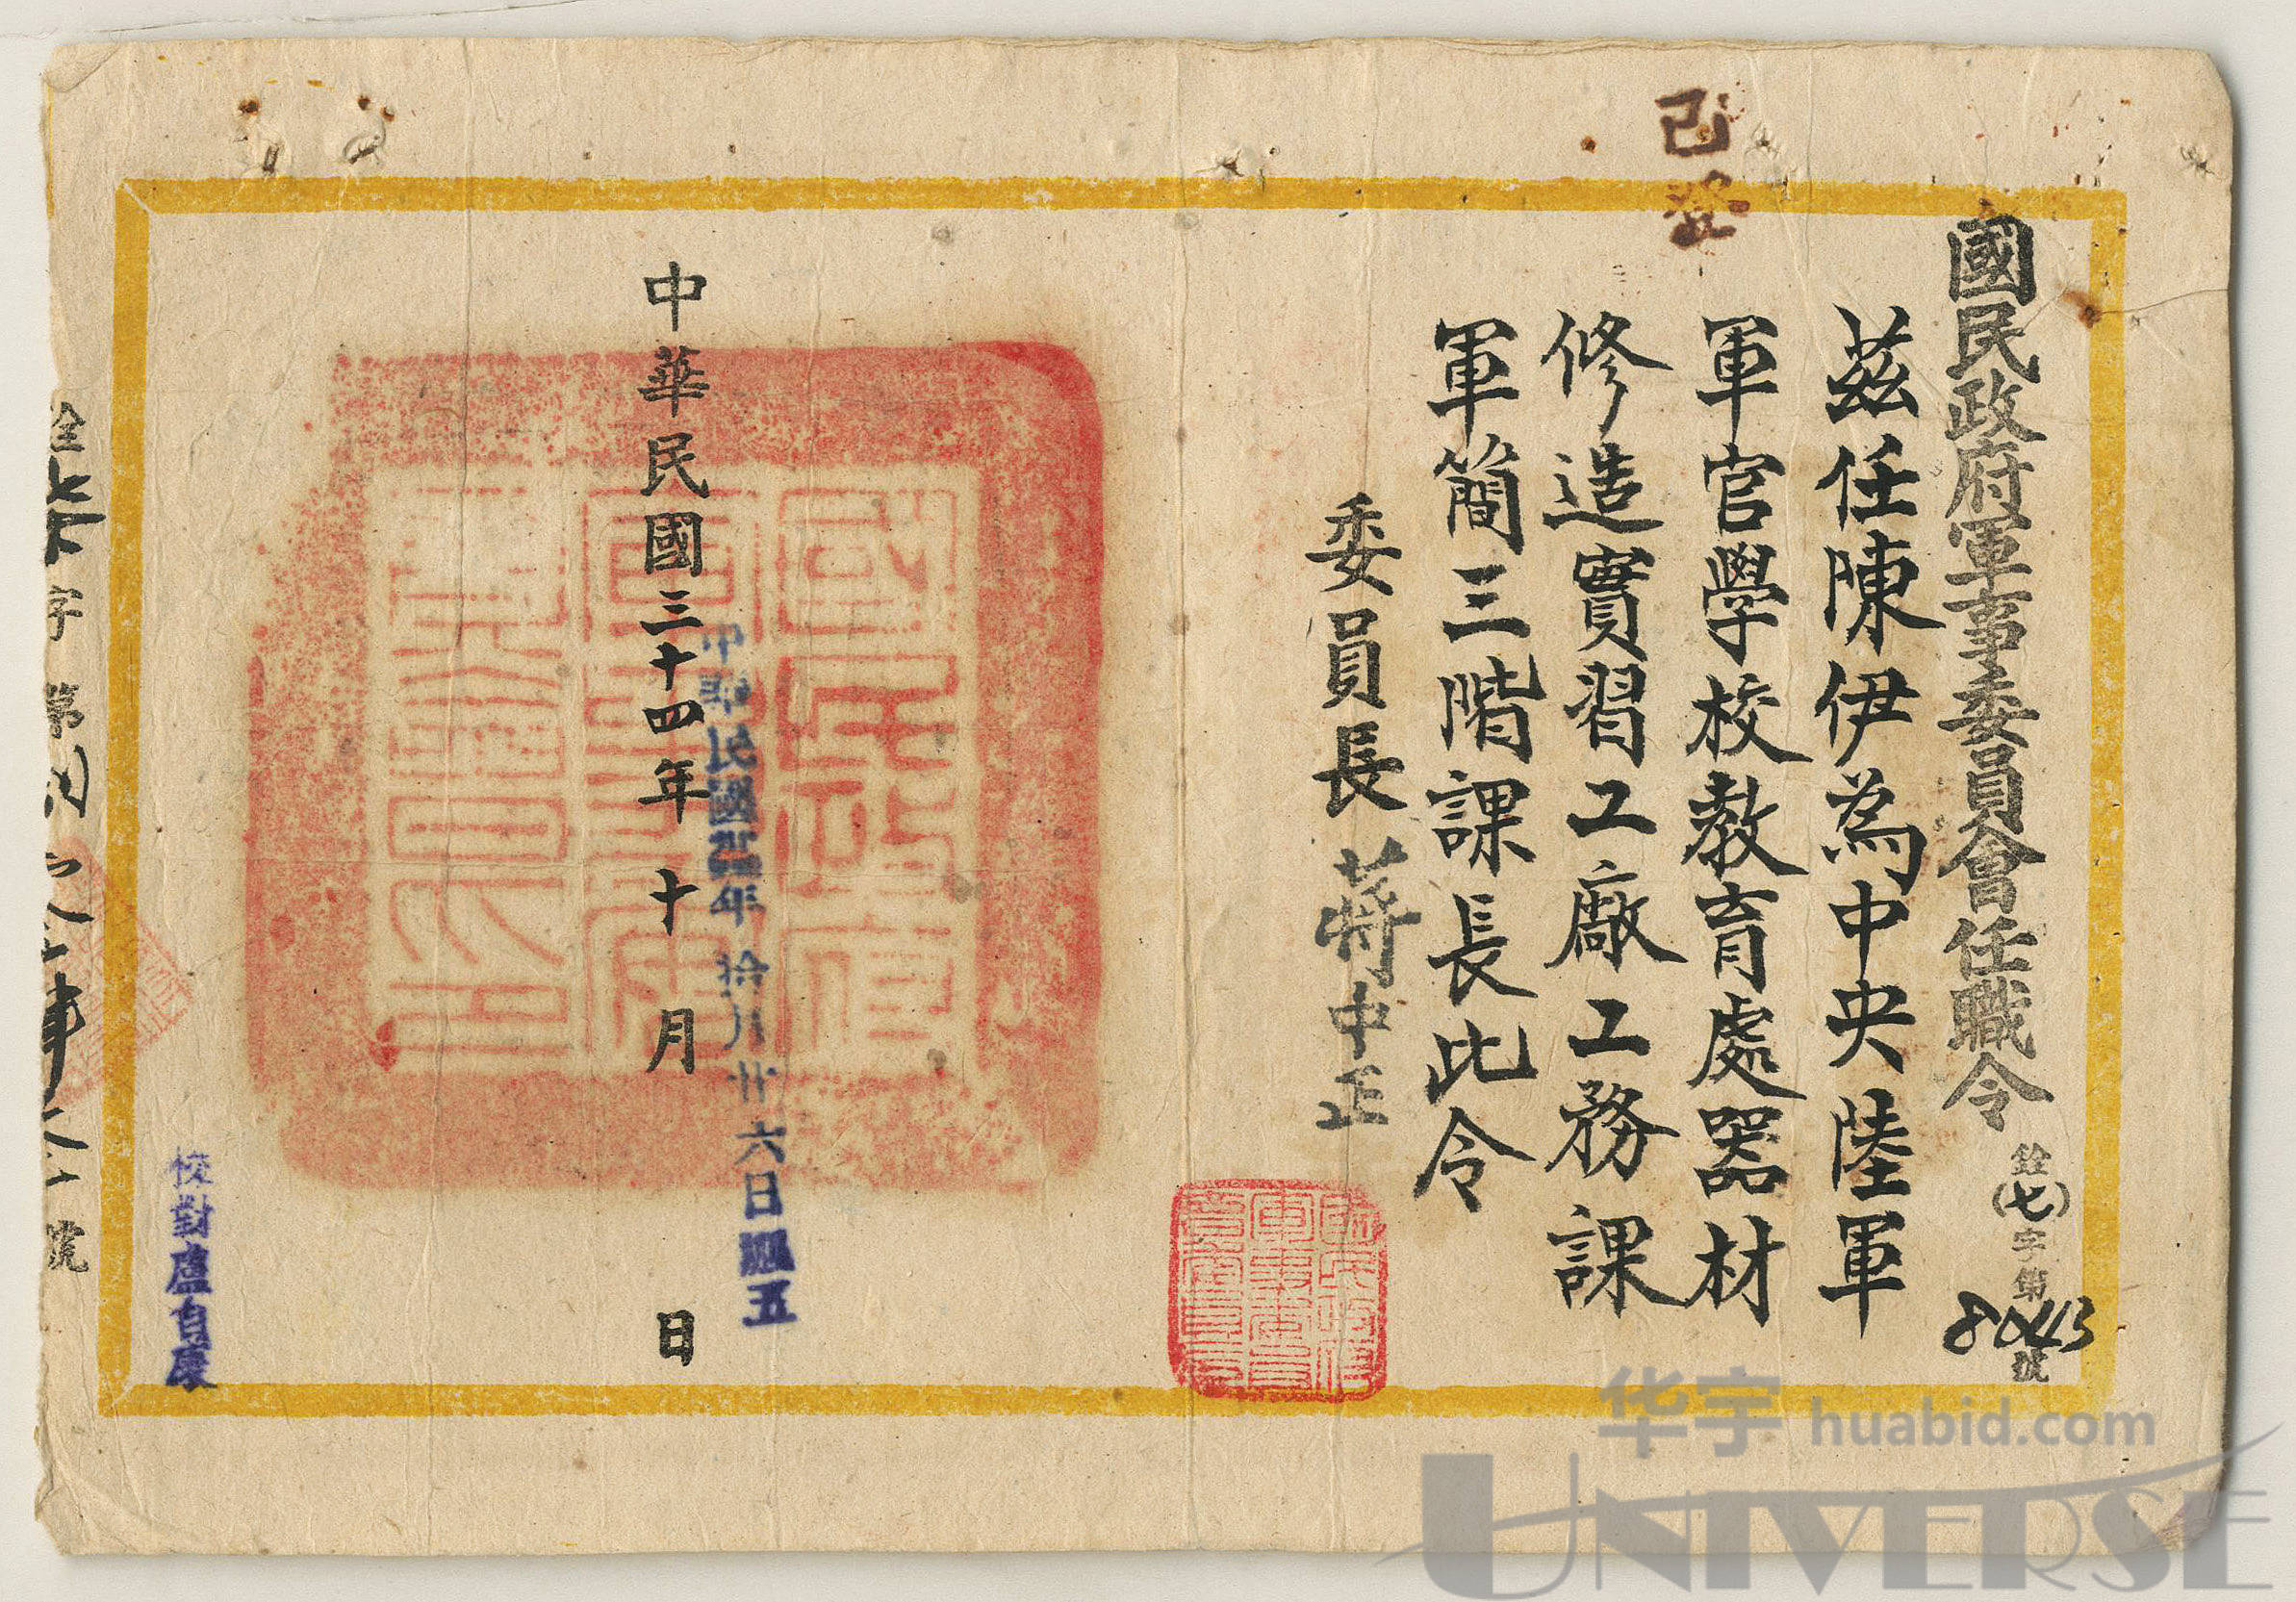 國民政府軍事委員會任職令
銓(七)字第8043號
已登
茲任陳伊為中央陸軍
軍官學校教育處器材
修造實習工廠工務課
軍簡三階課長此令
委員長蔣中正
國民政府
軍事委
員會印
中華民國三十四年十月 日
中華民國卅四年拾月廿六日
五
校對盧自康
字第
號
华宇 huabid.com
UNIVERSE